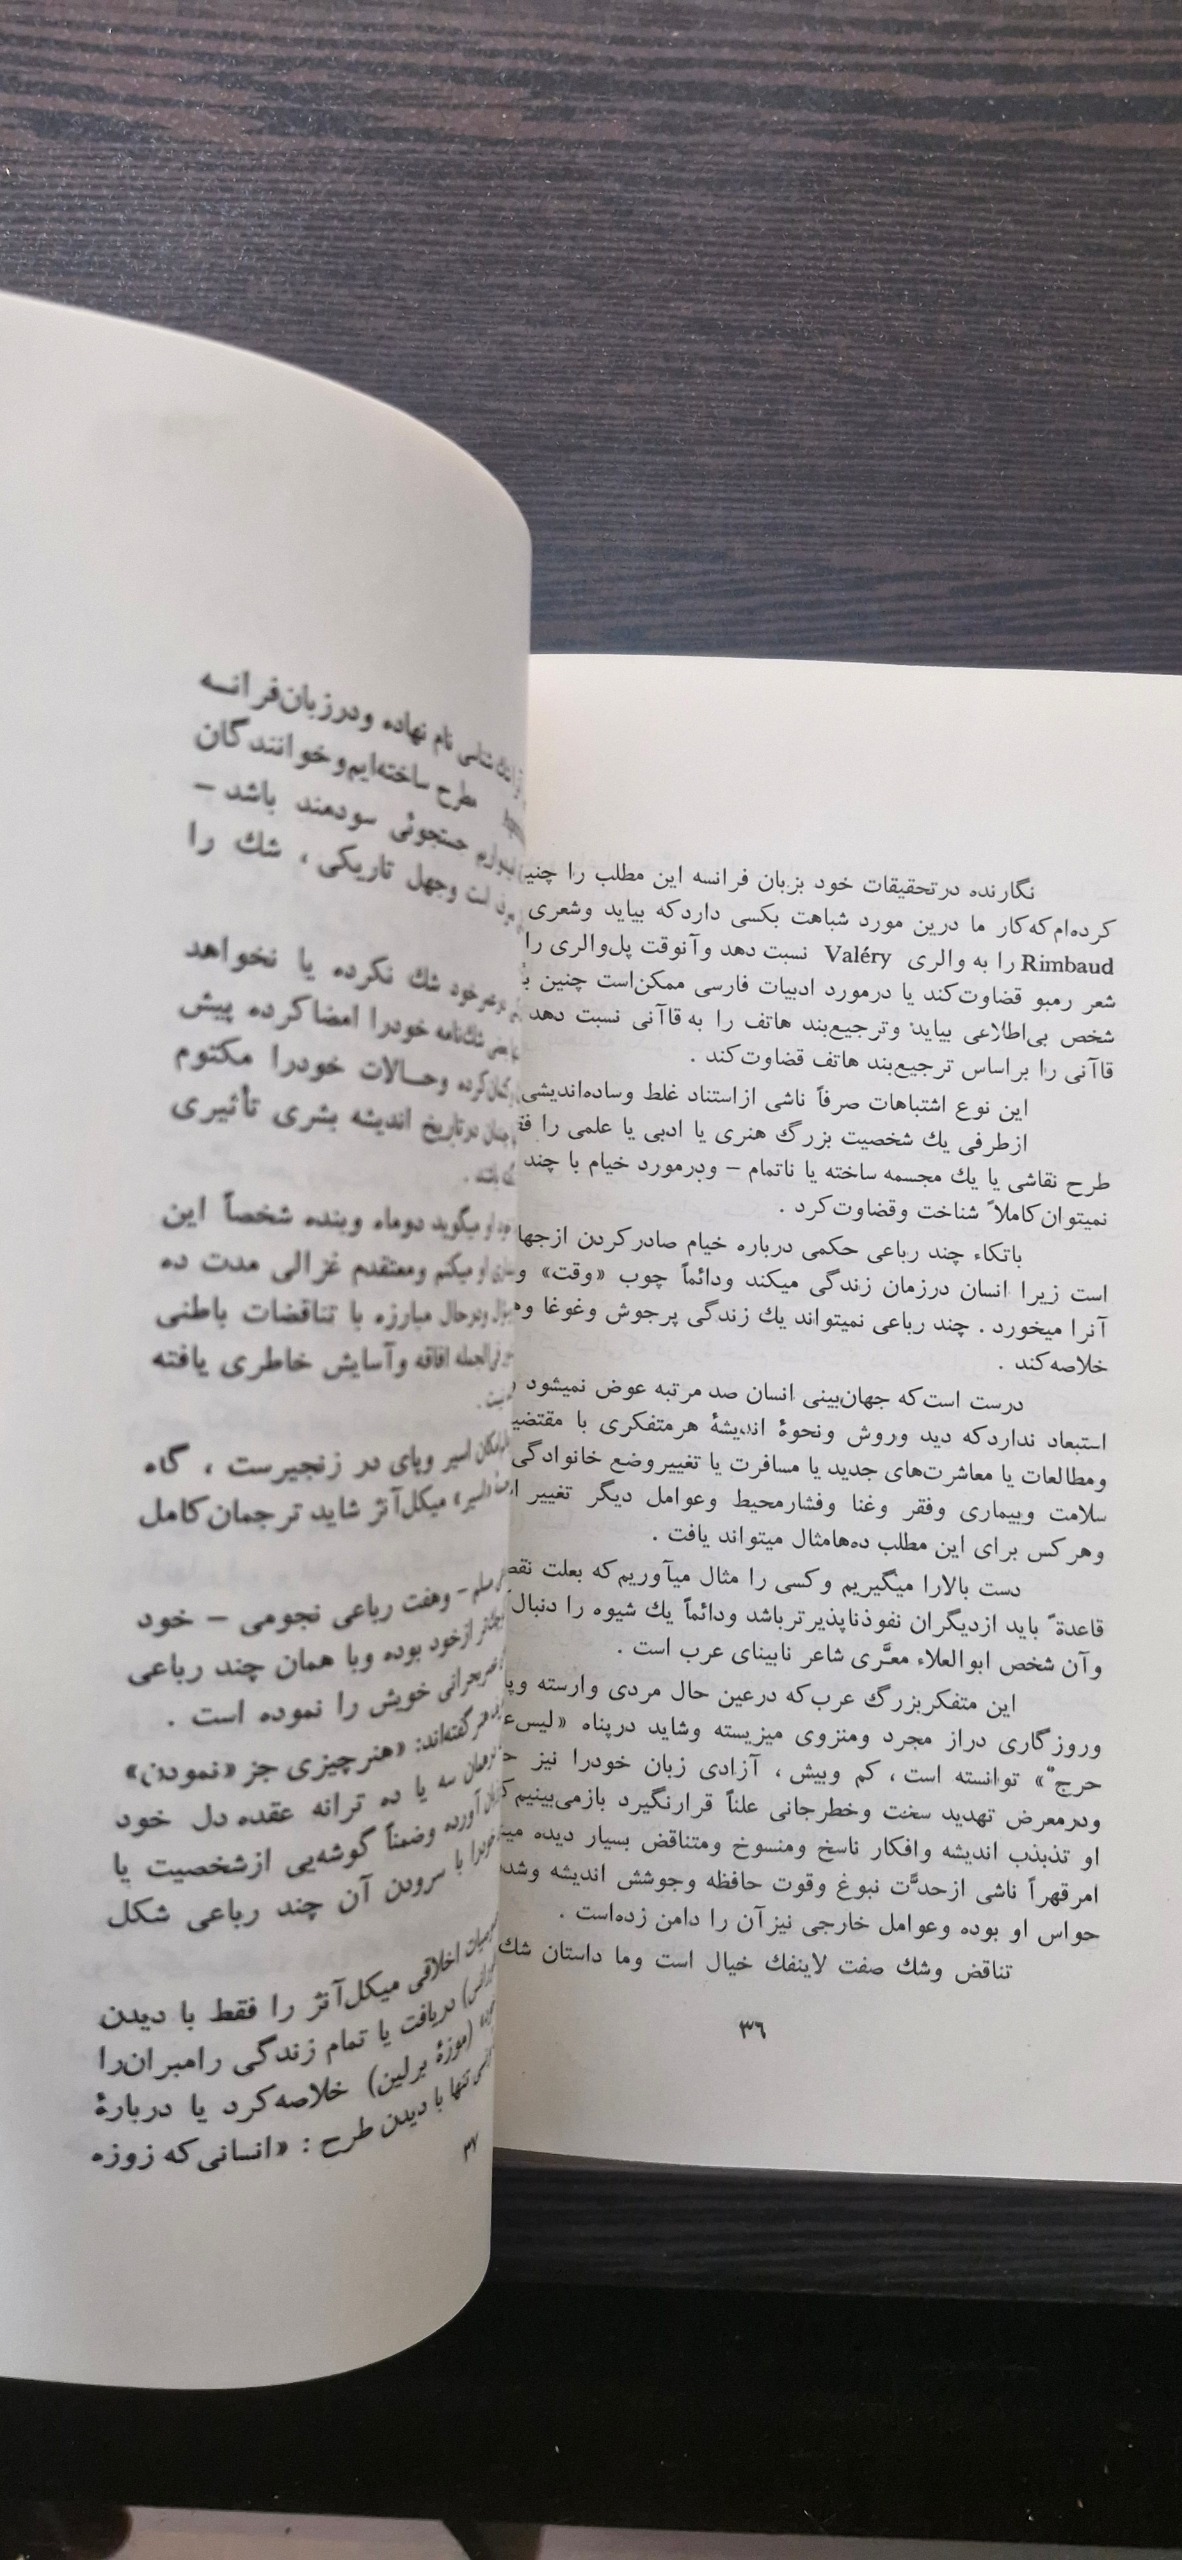 نگارنده درتحقیقات خود بزبان فرانسه این مطلب را
کرده‌ام‌که‌کار ما درین مورد شباهت بکسی داردکه بیاید وشعری
Rimbaud را به والری Valéry نسبت دهد وآنوقت پل‌والری را
شعر رمبو قضاوت‌کند یا درمورد ادبیات فارسی ممکن‌است چنین
شخص بی‌اطلاعی بیاید وترجیع‌بند هاتف را به قاآنی نسبت دهد
قاآنی را براساس ترجیع‌بند هاتف قضاوت‌کند .
این نوع اشتباهات صرفاً ناشی ازاستناد غلط وساده‌اندیشی
ازطرفی یك شخصیت بزرگ هنری یا ادبی یا علمی را
طرح نقاشی یا یك مجسمه ساخته یا ناتمام – ودرمورد خیام با چند
نمیتوان‌کاملاً شناخت وقضاوت‌کرد .
باتکاء چند رباعی حکمی درباره خیام صادرکردن
است زیرا انسان درزمان زندگی میکند ودائماً چوب «وقت»
آنرا میخورد . چند رباعی نمیتواند یك زندگی پرجوش وغوغا
خلاصه‌کند .
درست است‌که جهان‌بینی انسان صد مرتبه عوض نمیشود
استبعاد نداردکه دید وروش ونحوهٔ اندیشهٔ هرمتفکری با
ومطالعات یا معاشرت‌های جدید یا مسافرت یا تغییروضع خانوادگی
سلامت وبیماری وفقر وغنا وفشارمحیط وعوامل دیگر تغییر
وهرکس برای این مطلب ده‌هامثال میتواند یافت .
دست بالارا میگیریم وکسی را مثال میآوریم‌که بعلت
قاعدةً باید ازدیگران نفوذناپذیرترباشد ودائماً یك شیوه را دنبال
وآن شخص ابوالعلاء معرّی شاعر نابینای عرب است .
این متفکربزرگ عرب‌که درعین حال مردی وارسته
وروزگاری دراز مجرد ومنزوی میزیسته وشاید درپناه «لیس
حرج» توانسته است ، کم وبیش ، آزادی زبان خودرا نیز
ودرمعرض تهدید سخت وخطرجانی علناً قرارنگیرد بازمی‌بینیم
او تذبذب اندیشه وافکار ناسخ ومنسوخ ومتناقض بسیار دیده
امرقهراً ناشی ازحدّت نبوغ وقوت حافظه وجوشش اندیشه
حواس او بوده وعوامل خارجی نیزآن را دامن زده‌است .
تناقض وشك صفت لاینفك خیال است وما داستان شك
٣٦
نام نهاده ودرزبان‌فرانسه
مطرح ساخته‌ایم‌وخوانندگان
جستجوئی سودمند باشد –
است وجهل تاریکی ، شك را
خود شك نکرده یا نخواهد
شك‌نامه خودرا امضاکرده پیش
کتمان‌کرده وحالات خودرا مکتوم
چندان درتاریخ اندیشه بشری تأثیری
باشد .
او میگوید دوماه وبنده شخصاً این
او میکنم ومعتقدم غزالی مدت ده
ودرحال مبارزه با تناقضات باطنی
فی‌الجمله افاقه وآسایش خاطری یافته
اسیر وپای در زنجیرست ، گاه
میکل‌آنژ شاید ترجمان‌کامل
مسلم – وهفت رباعی نجومی – خود
ازخود بوده وبا همان چند رباعی
بحرانی خویش را نموده است .
گفته‌اند: «هنرچیزی جز «نمودن»
سه یا ده ترانه عقده دل خود
آورده وضمناً گوشه‌یی ازشخصیت یا
خودرا با سرودن آن چند رباعی شکل
اخلاقی میکل‌آنژ را فقط با دیدن
دریافت یا تمام زندگی رامبران‌را
(موزهٔ برلین) خلاصه‌کرد یا دربارهٔ
تنها با دیدن طرح : «انسانی‌که زوزه
٣٧